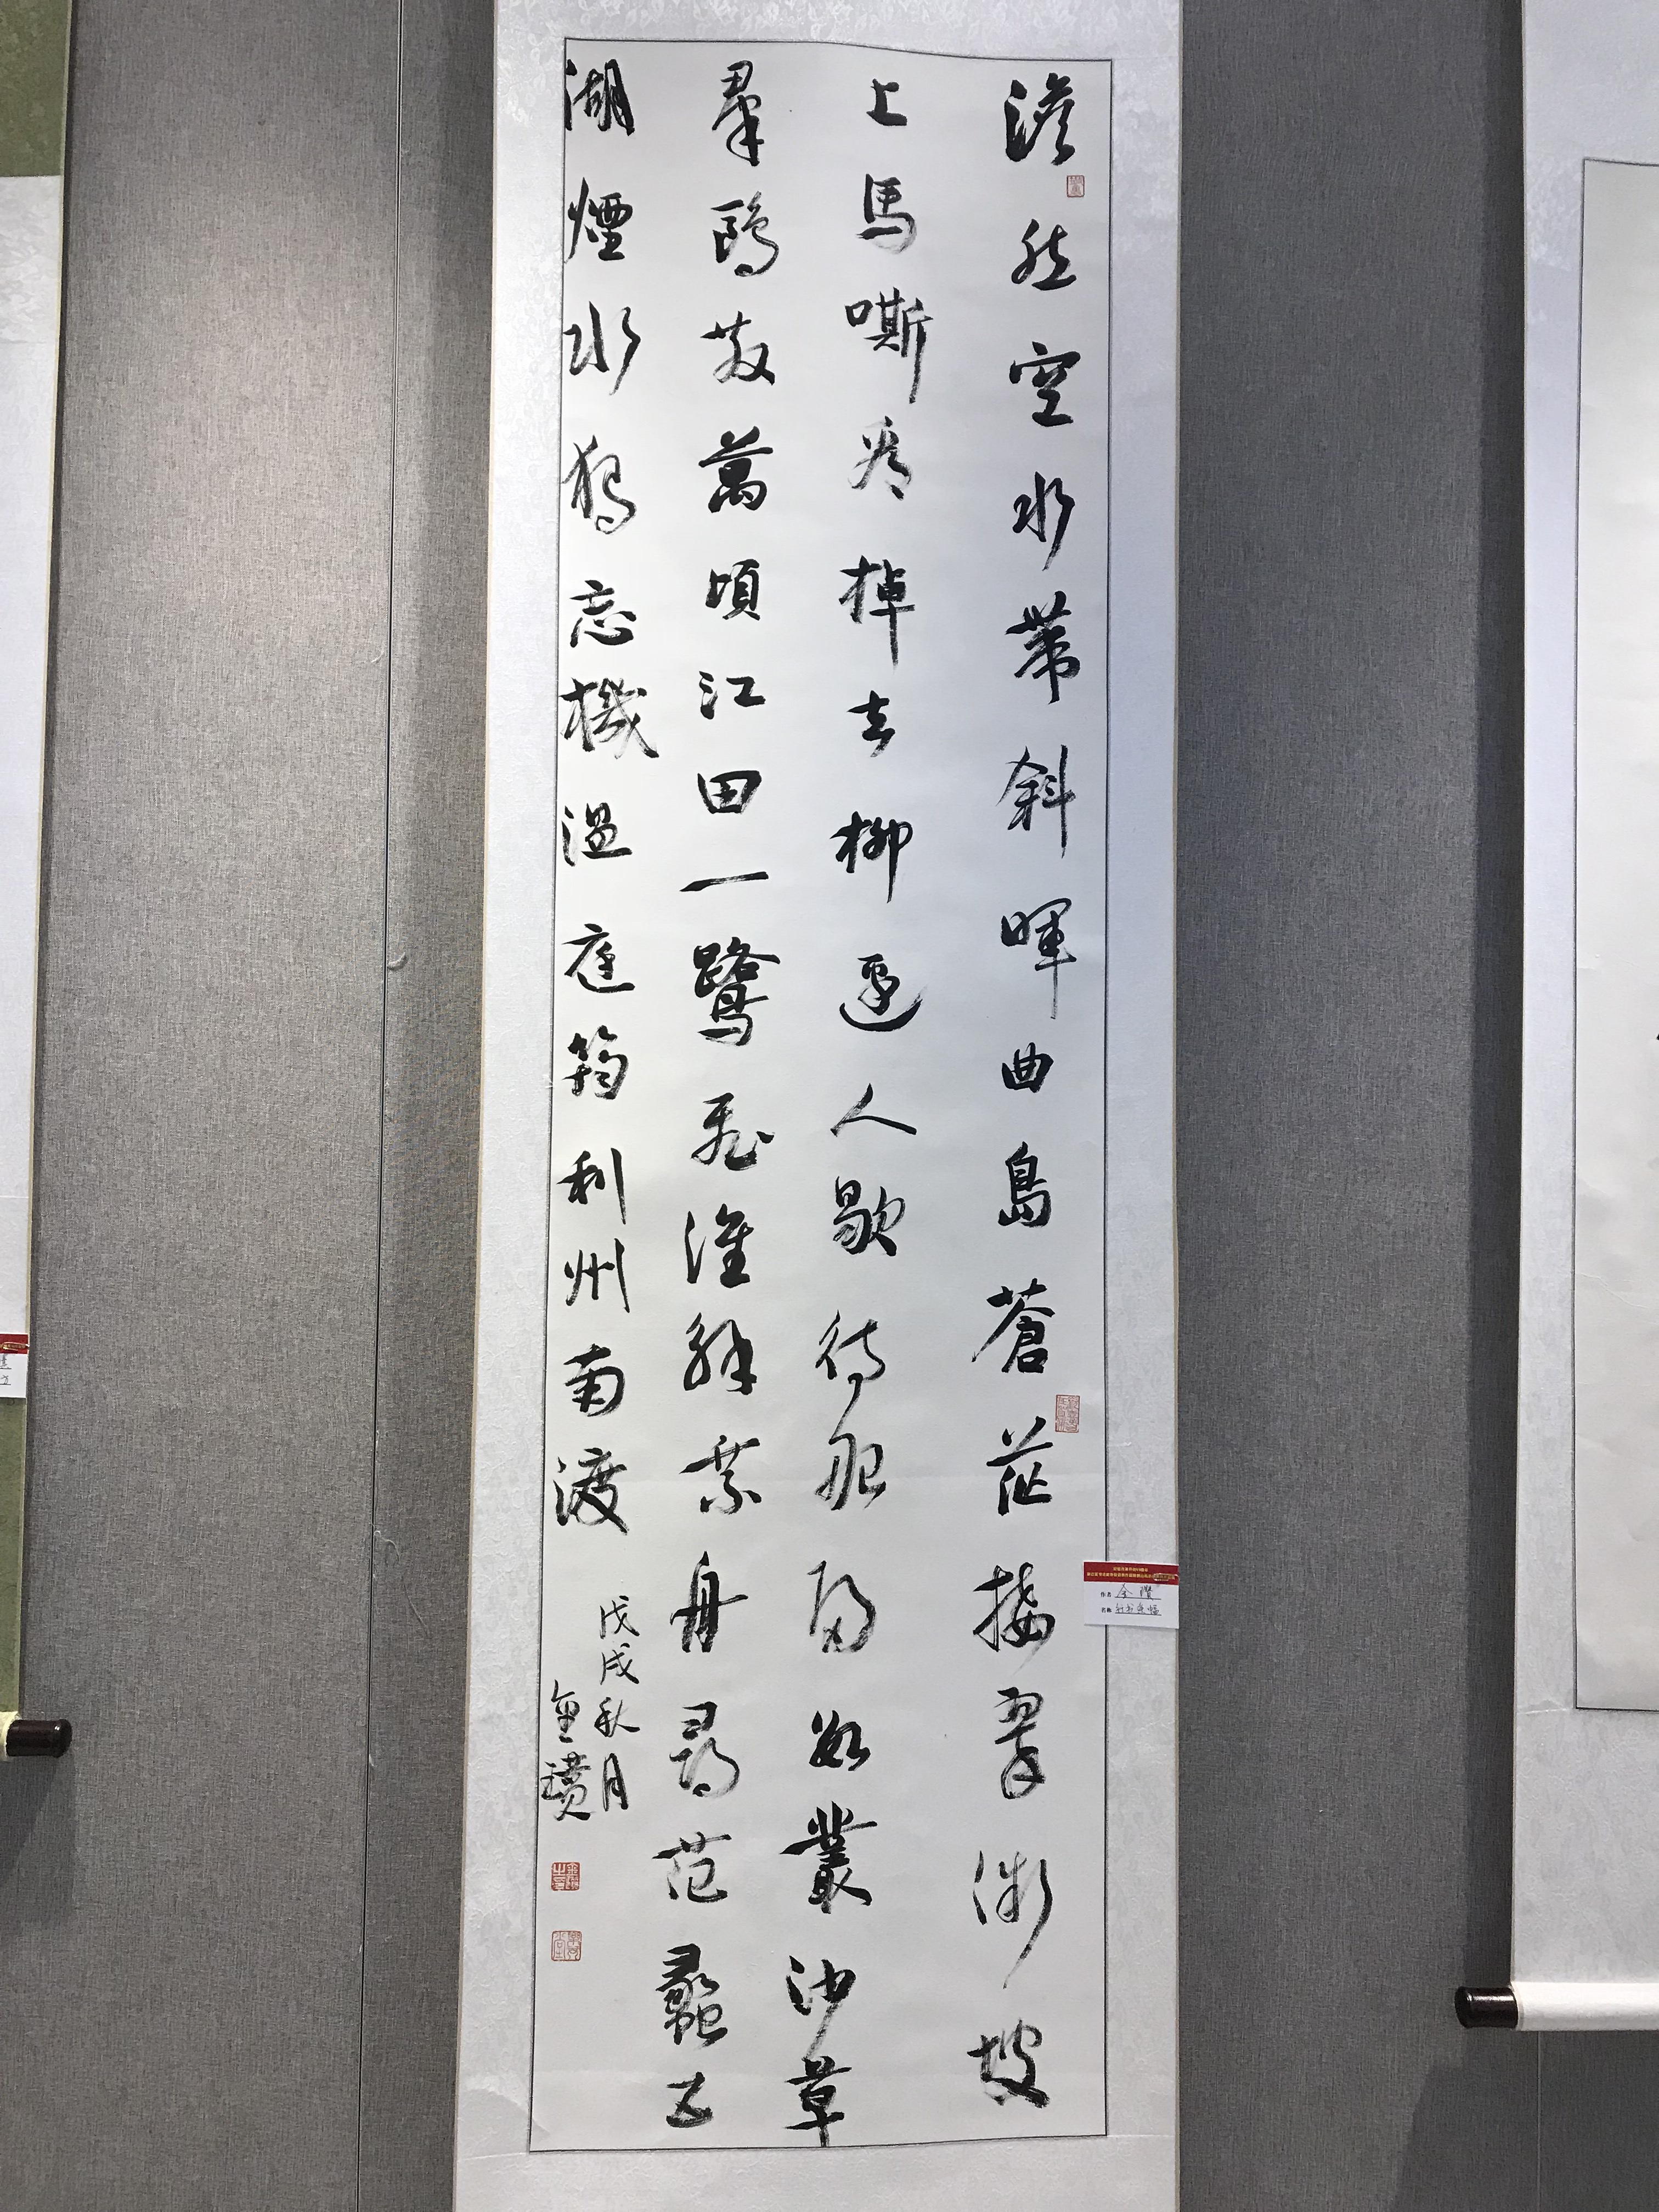 澹然空水帶斜暉曲島蒼茫接翠微坡
上馬嘶看棹去柳邊人歇待船歸數叢沙草
羣鷗散萬頃江田一鷺飛誰解乘舟尋范蠡五
湖煙水獨忘機溫庭筠利州南渡
戊戌秋月
金瓚
作者 金瓒
名称 行书条幅